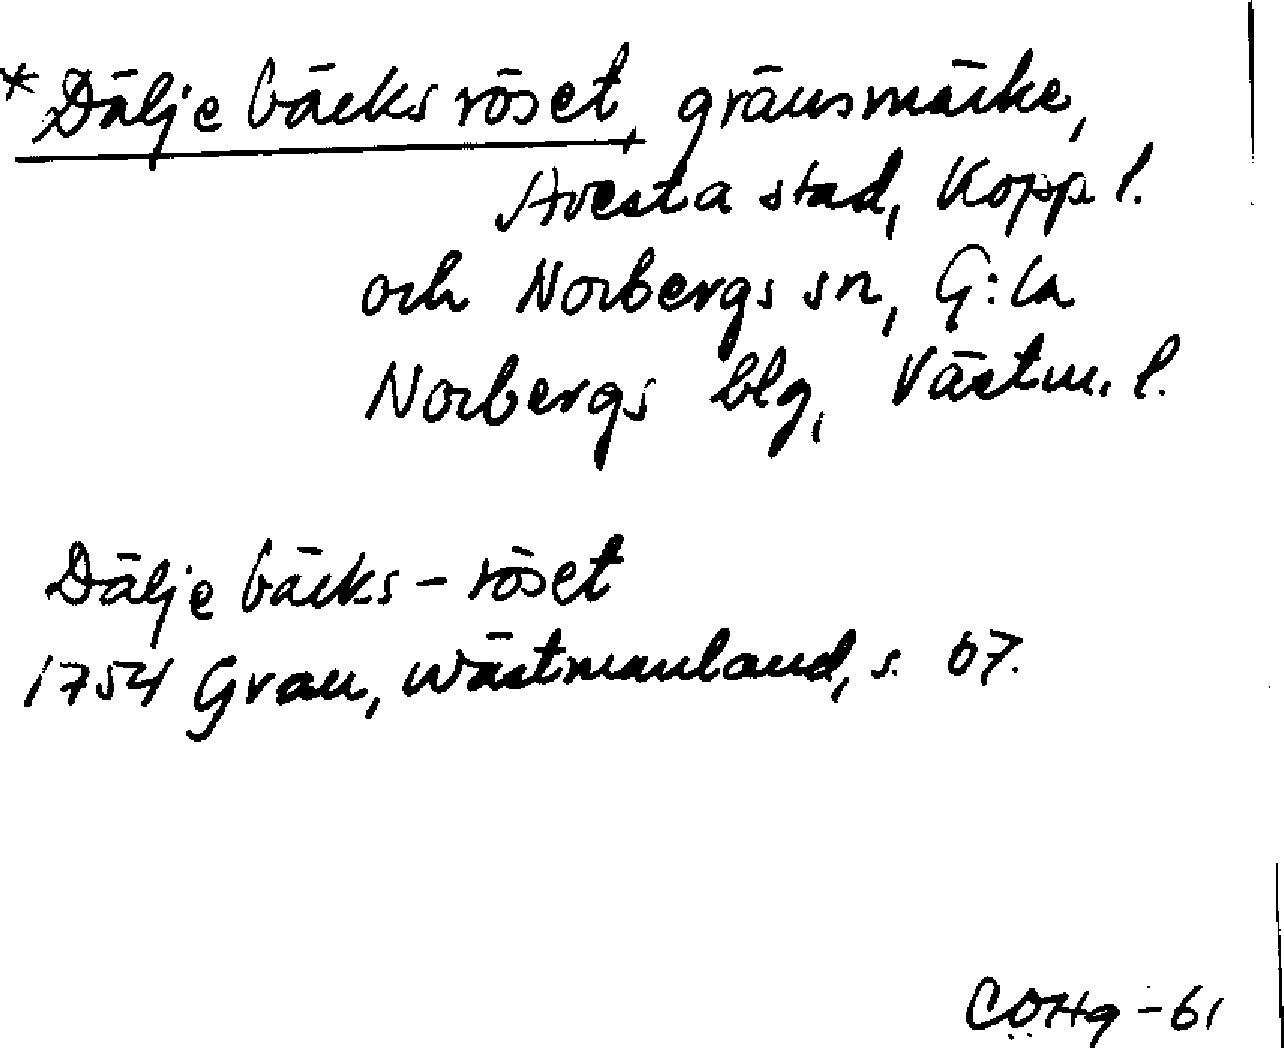 *Däljebäcksröset, gränsmärke,
Avesta stad, Kopp l.
och Norbergs sn, G:la
Norbergs blg, Västm. l.
Däljebäcks-röset
1754 Grau, Wästmanland, s. 67.
CÖHg -61